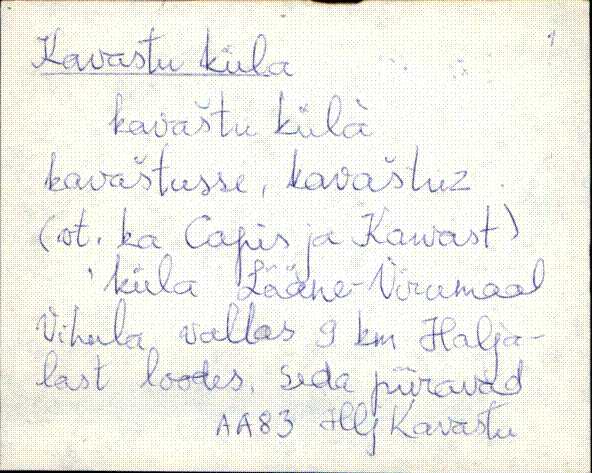 1
Kavastu küla
kavaštu külà
kavaštusse, kavaštuz
(vt. ka Capis ja Kawast)
küla Lääne-Virumaal
Vihula vallas 9 km Halja-
last loodes. Seda piiravad
AA83 Hlj Kavastu